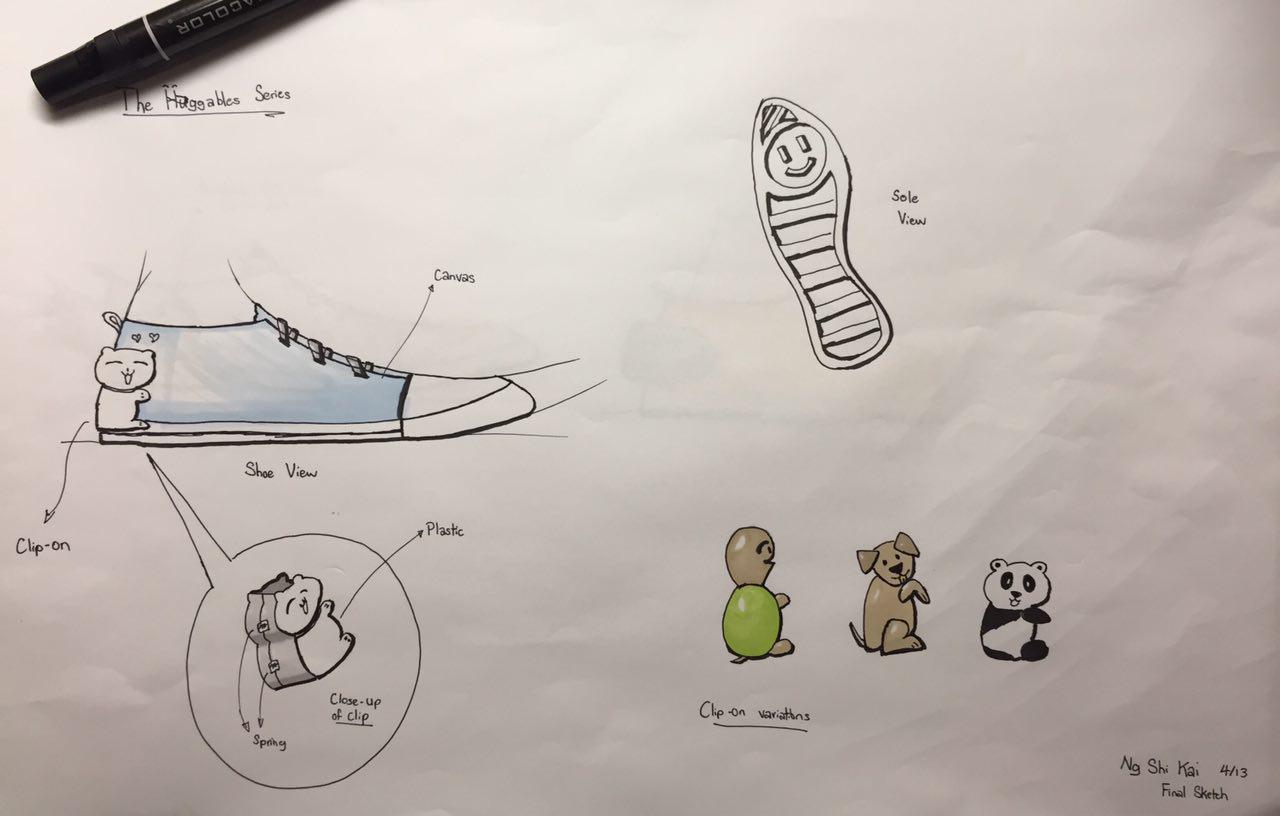 ACOLOR
The Huggables Series
Sole
View
Canvas
Shoe View
Clip-on
Plastic
Close-up
of clip
Spring
Clip-on variations
Ng Shi Kai 4/13
Final Sketch